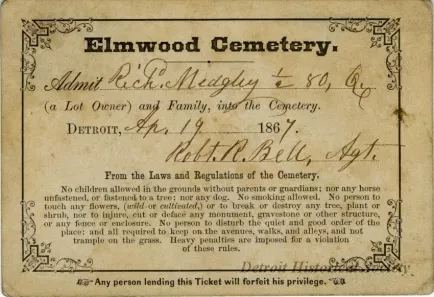 Elmwood Cemetery.
Admit Rich'd. Medgley ½ 80, Q,
(a Lot Owner) and Family, into the Cemetery.
DETROIT, Ap. 19 1867.
Robt. R. Bell, Agt.
From the Laws and Regulations of the Cemetery.
No children allowed in the grounds without parents or guardians; nor any horse
unfastened, or fastened to a tree; nor any dog. No smoking allowed. No person to
touch any flowers, (wild or cultivated,) or to break or destroy any tree, plant or
shrub, nor to injure, cut or deface any monument, gravestone or other structure,
or any fence or enclosure. No person to disturb the quiet and good order of the
place: and all required to keep on the avenues, walks, and alleys, and not
trample on the grass. Heavy penalties are imposed for a violation
of these rules.
Detroit Historical Society
Any person lending this Ticket will forfeit his privilege.